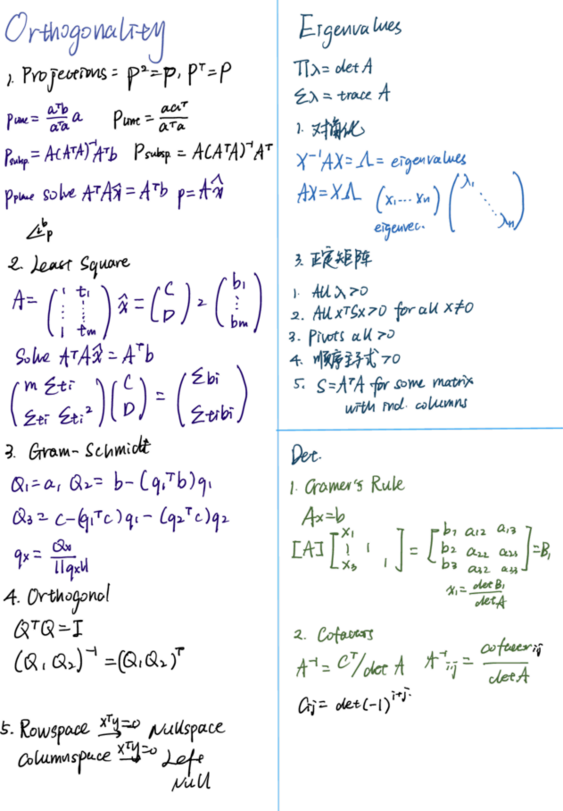 Orthogonality
1. Projections = P² = P, Pᵀ = P
Pline = aᵀb/aᵀa a  Pline = aaᵀ/aᵀa
Psubsp = A(AᵀA)⁻¹Aᵀb  Psubsp = A(AᵀA)⁻¹Aᵀ
Pplane solve AᵀAx̂ = Aᵀb  p = Ax̂
b
p
2. Least Square
A = (1 t₁ ⋮ ⋮ 1 tm) x̂ = (C D) = (b₁ ⋮ bm)
Solve AᵀAx̂ = Aᵀb
(m Σti Σti Σti²) (C D) = (Σbi Σtibi)
3. Gram-Schmidt
Q₁ = a, Q₂ = b - (q₁ᵀb)q₁
Q₃ = c - (q₁ᵀc)q₁ - (q₂ᵀc)q₂
qx = Qx/||qx||
4. Orthogonal
QᵀQ = I
(Q₁Q₂)⁻¹ = (Q₁Q₂)ᵀ
5. Rowspace xᵀy=0 → Nullspace
Columnspace xᵀy=0 → Left
Null
Eigenvalues
Πλ = det A
Σλ = trace A
1. 对角化
X⁻¹AX = Λ = eigenvalues
AX = XΛ (x₁ ... xn) (λ₁ ⋱ λn)
eigenvec.
3. 正定矩阵
1. All λ>0
2. All xᵀSx>0 for all x≠0
3. Pivots all >0
4. 顺序主子式>0
5. S=AᵀA for some matrix
with ind. columns
Det.
1. Cramer's Rule
Ax=b
[A] [x₁ 1 1 x₃ 1] = [b₁ a₁₂ a₁₃ b₂ a₂₂ a₂₃ b₃ a₃₂ a₃₃] = B₁
x₁ = detB₁/detA
2. Cofactors
A⁻¹ = Cᵀ/det A  A⁻¹ij = cofactor ij/det A
Cij = det(-1)ⁱ⁺ʲ